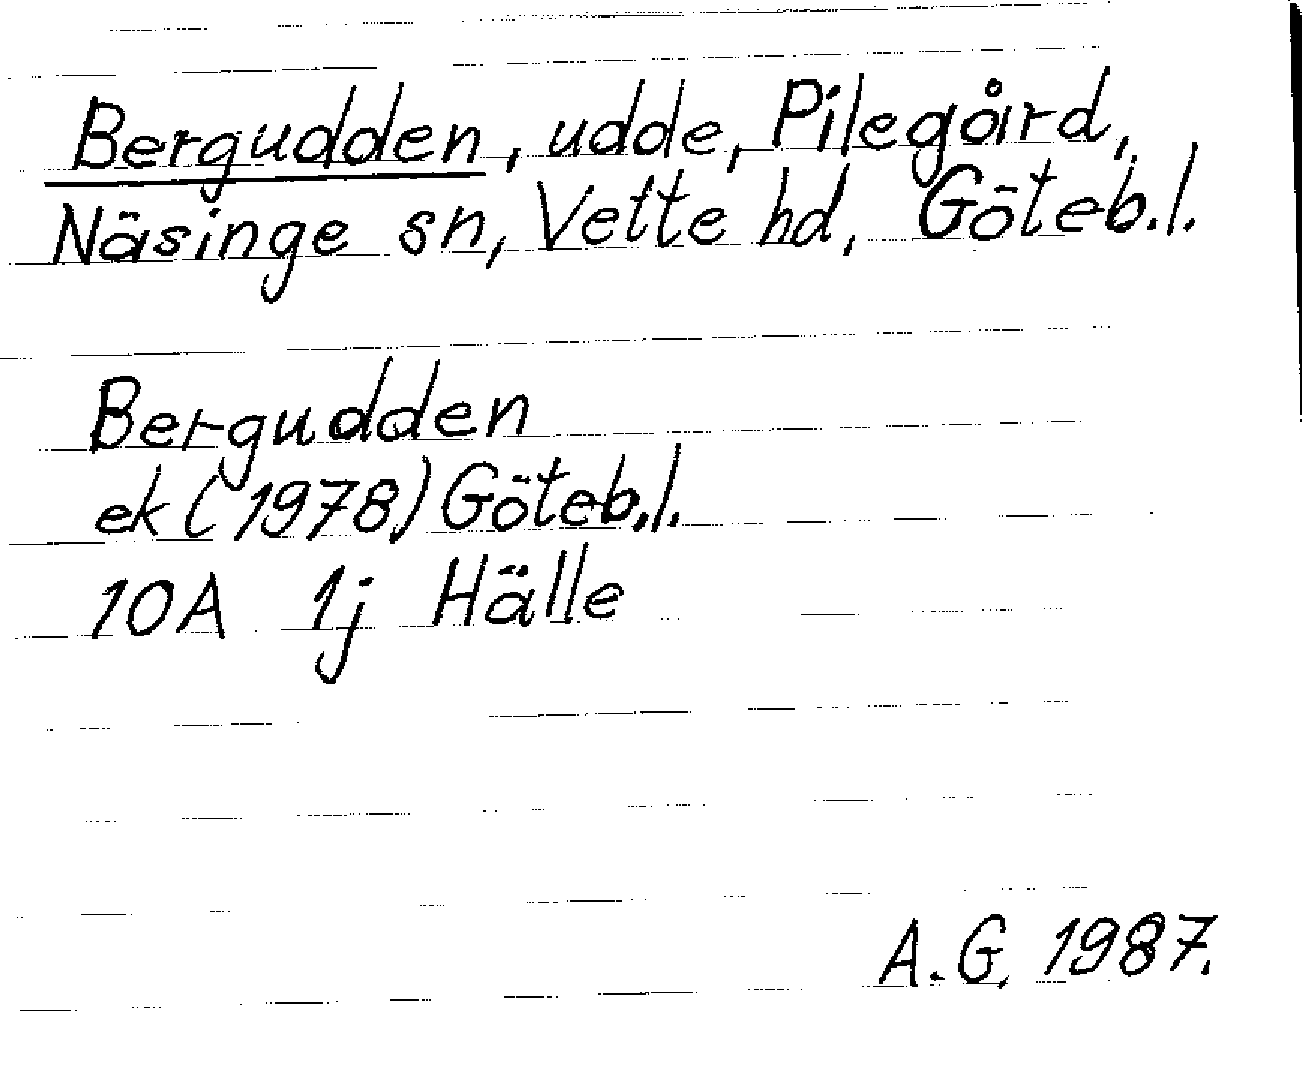 Bergudden, udde, Pilegård,
Näsinge sn, Vette hd, Göteb.l.
Bergudden
ek (1978) Göteb.l.
10A 1j Hälle
A.G. 1987.